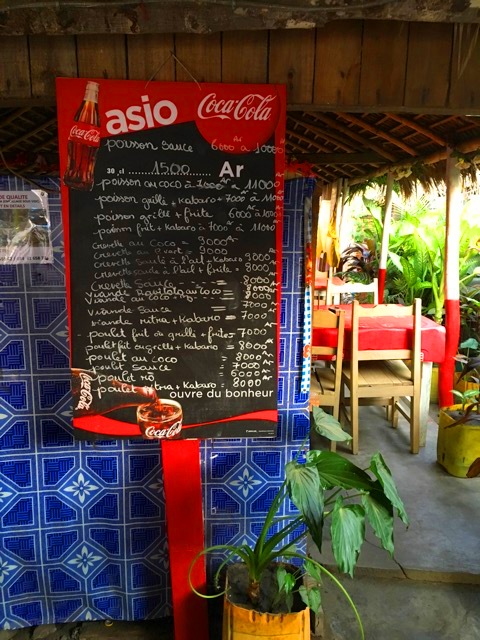 DE QUALITE
Coca-Cola
asio
Coca-Cola
poisson sauce 6000 à 10000 Ar
30 cl ............ 1500 ........ Ar
poisson au coco à 7000 à 11000
poisson grillé + kabaro = 7000 à 11000
poisson grillé + frite 6000 à 10000
poisson frit + kabaro à 7000 à 11000
Crevette au Coco = 9000 Ar
Crevette au
crevette sauté à l'ail + kabaro 9000
crevette sauté à l'ail + frite = 8000
Crevette sauce = 8000
Viande au coco 8000
Viande sauce = 7000
viande ritra + kabaro = 7000
poulet frit ou grillé + frites 7000
poulet frit ou grillé + kabaro = 8000
poulet au coco = 8000 Ar
poulet sauce = 7000 Ar
poulet rô = 6000 Ar
poulet ritra + kabaro = 8000
ouvre du bonheur
Coca-Cola
Coca-Cola